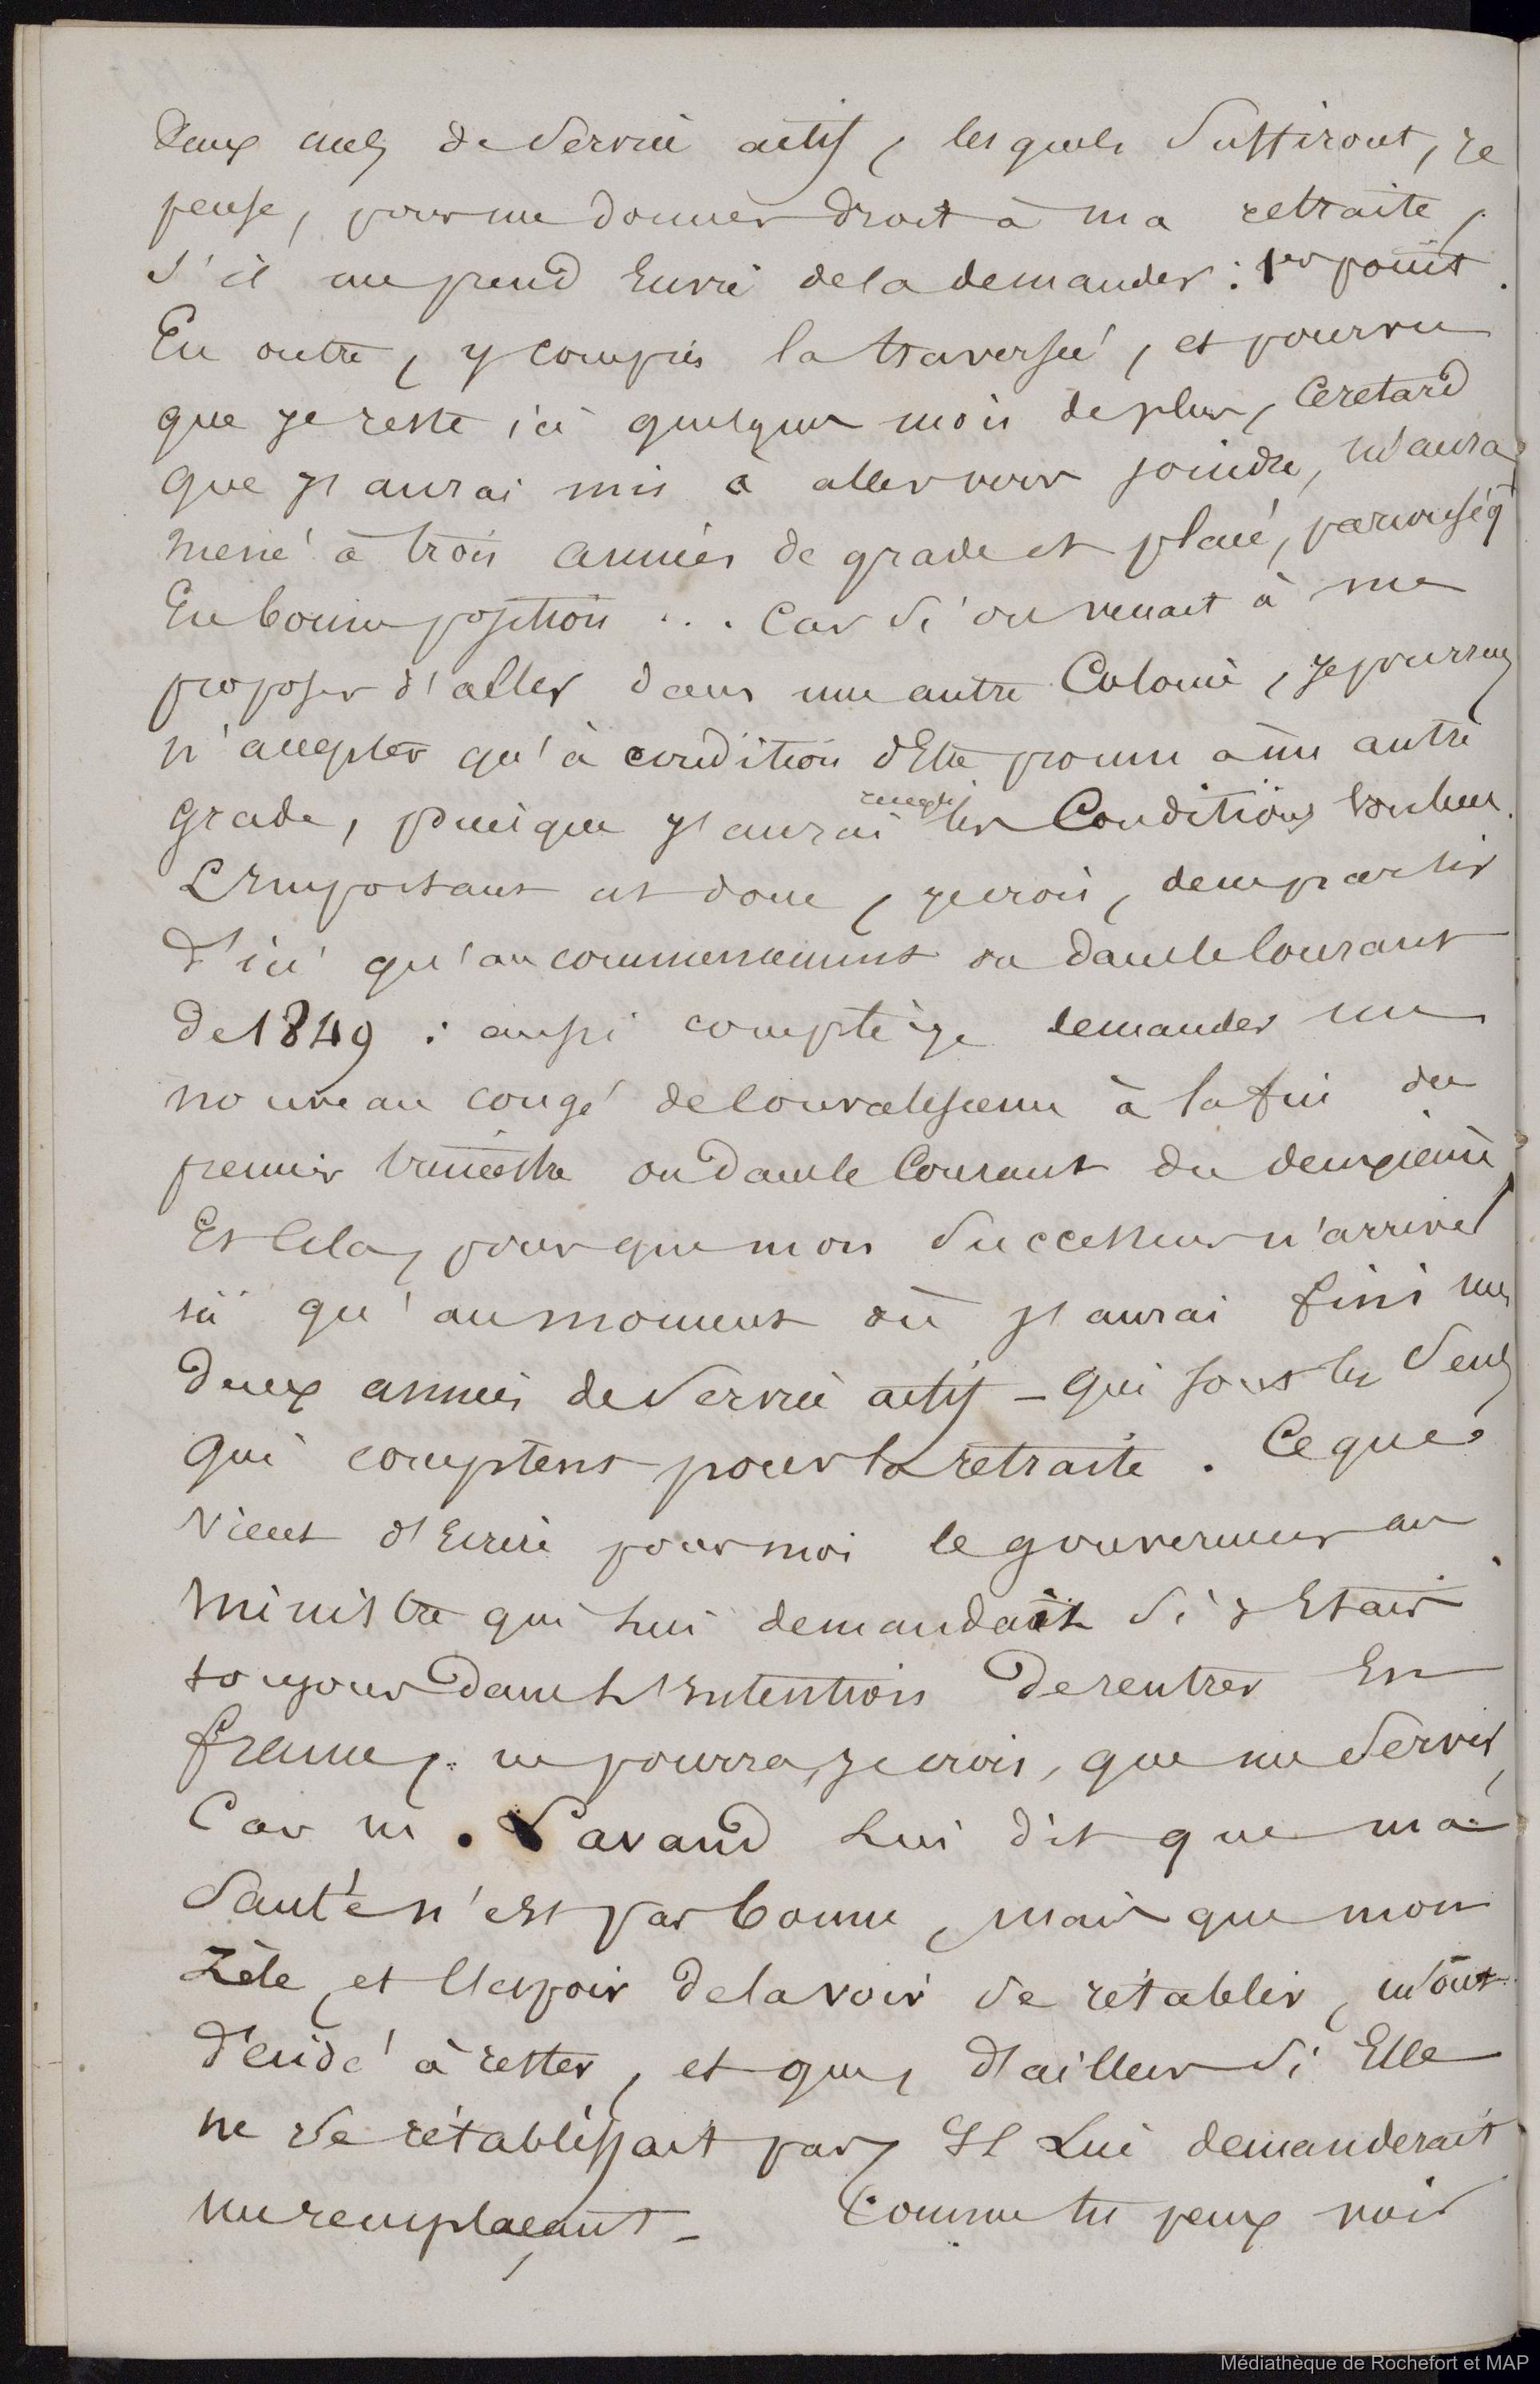 deux ans de Service actif, lesquels Suffiront, je
pense, pour me donner droit à ma retraite,
S'il me prend Envie de la demander : 1er point.
En outre, y compris la traversée, et pourvu
que je reste ici quelques mois de plus, Ce retard
que j'aurai mis à aller vous joindre, m'aura
mené à trois années de grade et placé, par conséqt
En bonne position ... Car Si on venait à me
proposer d'aller dans une autre Colonie, je pourrais
n'accepter qu'à condition d'Etre promu à un autre
grade, puisque j'aurai rempli les Conditions voulues.
L'Important est donc, je crois, de ne partir
d'ici qu'au commencement ou dans le Courant
de 1849 : aussi compte-je demander un
nouveau congé de Convalescence à la fin du
premier trimestre ou dans le Courant du deuxième,
Et Cela, pour que mon Successeur n'arrive
ici qu'au moment où j'aurai fini mes
deux années de Service actif - qui sont les Seules
qui comptent pour la retraite. Ce que
vient d'Ecrire pour moi le gouverneur au
ministre qui lui demandait Si j'Etais
toujours dans l'Intention de rentrer En
france, ne pourra, je crois, que me Servir,
Car m. Pavand Lui dit que ma
Santé n'est pas bonne, mais que mon
Zèle, et l'espoir de la voir Se rétablir, m'ont
décidé à rester, et que, d'ailleurs Si Elle
ne Se rétablissait pas, Il Lui demanderait
un remplaçant - Comme tu peux voir
Médiathèque de Rochefort et MAP